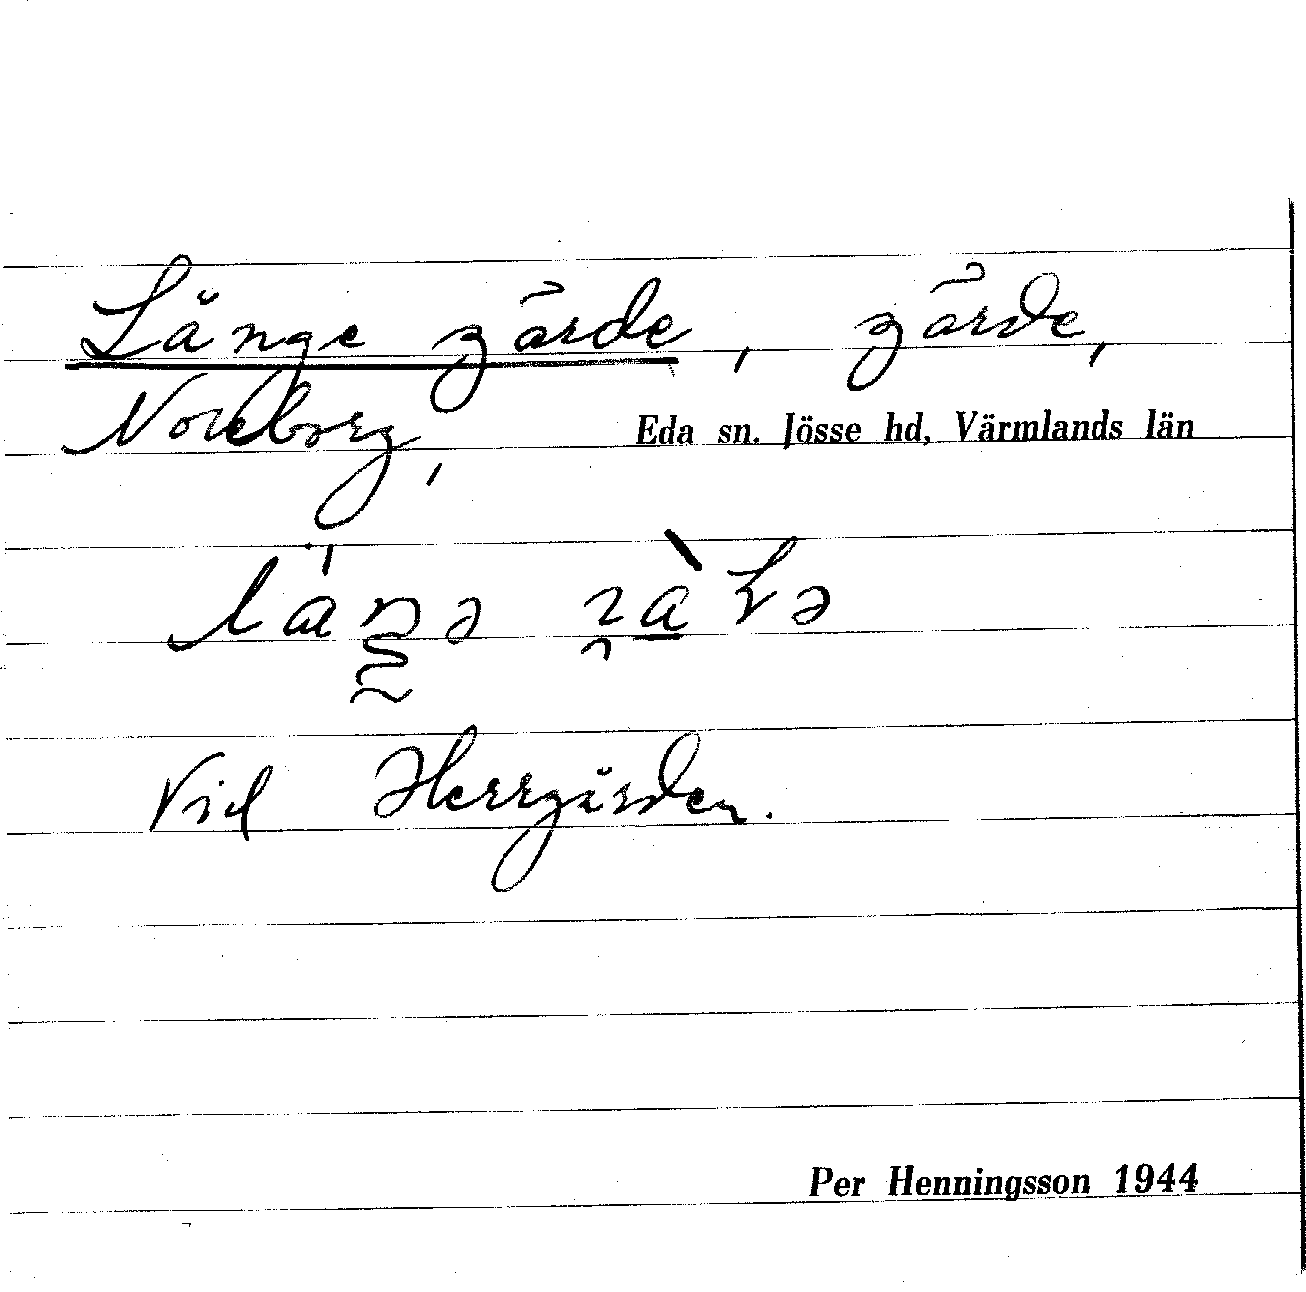 Långe gärde, gärde,
Noreborg, Eda sn. Jösse hd, Värmlands län
Vid Herrgården.
Per Henningsson 1944